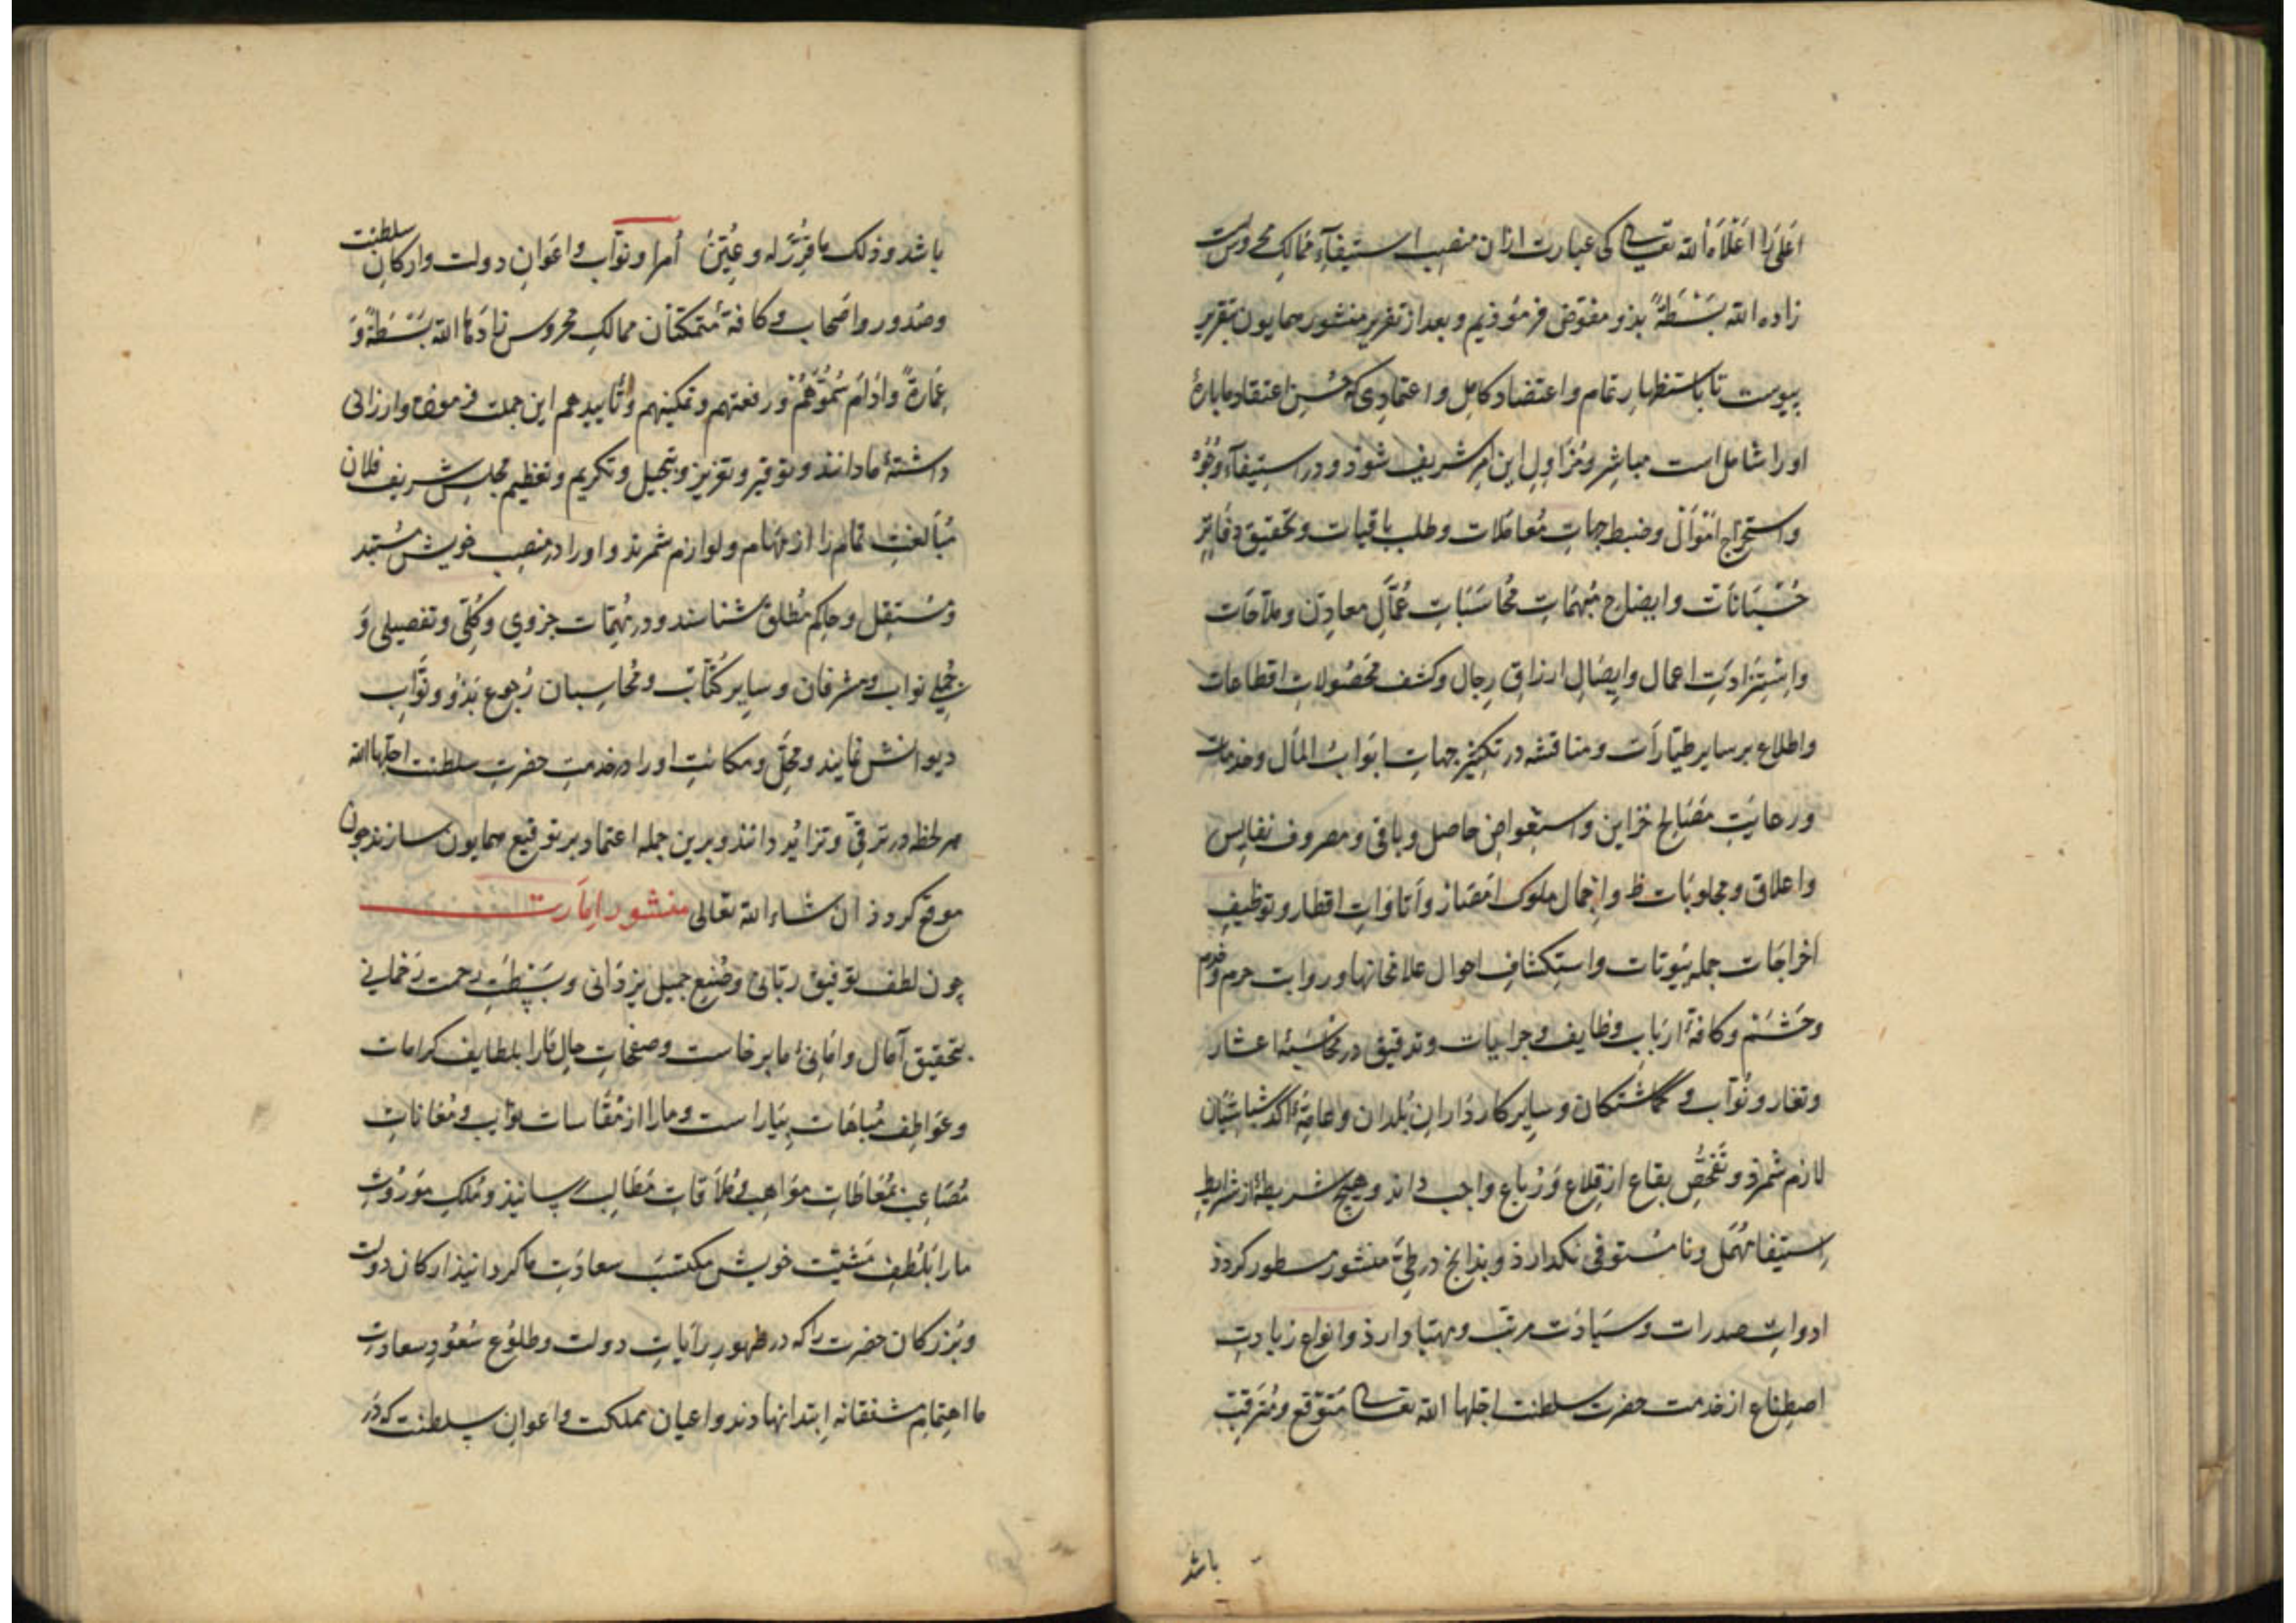 اعلی را اعلاه الله تعالی کی عبارت ازان منصب استیفآء ممالک محروس است
زاده الله بسطةً بذو مفوض فرموذیم و بعد از تقریر منشور همایون بتقریر
پیوست تا باستظهار تمام و اعتضاد کامل و اعتمادی که حسن اعتقاد ما بارۀ
اورا شامل است مباشر و مزاول این امر شریف شوذ و در استیفآء وجوه
و استخراج اموال و ضبط جهات معاملات و طلب باقیات و تحقیق دفاتر
حسبانات و ایضاح مبهمات محاسبات عمّال معادن و ملّاحات
و استزادت اعمال و ایصال ارزاق رجال و کشف محصولات اقطاعات
و اطلاع بر سایر طیارات و مناقشه در تکثیر جهات ابواب المال و خدمات
و رعایت مصالح خزاین و استعواض حاصل و باقی و مصروف نفایس
و اعلاق و مجلوبات و احمال ملوک امصار و اتاوات اقطار و توظیف
اخراجات جمله بیوتات و استکشاف احوال علافخانها و روایت حرم و خدم
و حشم و کافۀ ارباب وظایف و جرایات و تدقیق در محاسبۀ اعشار
و نواب و گماشتکان و سایر کارداران بلدان و عامۀ اکدشباشیان
لازم شمرد و تفحص بقاع از قلاع و رباع واجب داند و هیچ شریطه از شرایط
استیفا مهمل و نا مستوفی نکذارذ و بذانچ در طیّ منشور مسطور کردذ
ادوات صدرات و سیادت مرتب و مهیا دارذ و انواع زیادت
اصطناع از خدمت حضرت سلطنت اجلها الله تعالی متوقع و مترقب
باشد
باشد و ذلک ما قرّر له و عیّن امرا و نواب و اعوان دولت و ارکان سلطنت
و صدور و اصحاب و کافۀ متمکنان ممالک محروس زادها الله بسطةً و
عمارةً و ادام سموّهم و رفعتهم و تمکینهم و تأییدهم این جملت فرموده و ارزانی
داشتۀ ما دانند و توقیر و تعزیز و تبجیل و تکریم و تعظیم مجلس شریف فلان
مبالغت تمام را از مهام و لوازم شمرند و اورا در منصب خویش مستبد
و مستقل و حاکم مطلق شناسند و در مهمات جزوی و کلّی و تفصیلی و
جملی نواب و مشرفان و سایر کتّاب و محاسبان رجوع بذو و نوّاب
دیوانش نمایند و محل و مکانت اورا در خدمت حضرت سلطنت اجلها الله
هر لحظه در ترقّی و تزاید دانند و برین جمله اعتماد بر توقیع همایون سازند چون
موقع کردذ ان شاء الله تعالی منشور امارت
چون لطف توفیق ربانی و صنع جمیل یزدانی و بسطت رحمت رحمانی
بتحقیق آمال و امانیٔ ما برخاست و صفحات حال مارا بلطایف کرامات
و عواطف مباهات بیاراست و مارا از مقاسات نوایب و معانات
مصاعب بمعاطات مواهب و ملاقات مطالب رسانیذ و ملک موروث
مارا بلطف مشیّت خویش مکتسب سعادت ما کردانیذ ارکان دولت
و بزرکان حضرت را که در ظهور رایات دولت و طلوع سعود سعادت
ما اهتمام مشفقانه ابتدا نهادند و اعیان مملکت و اعوان سلطنت که در